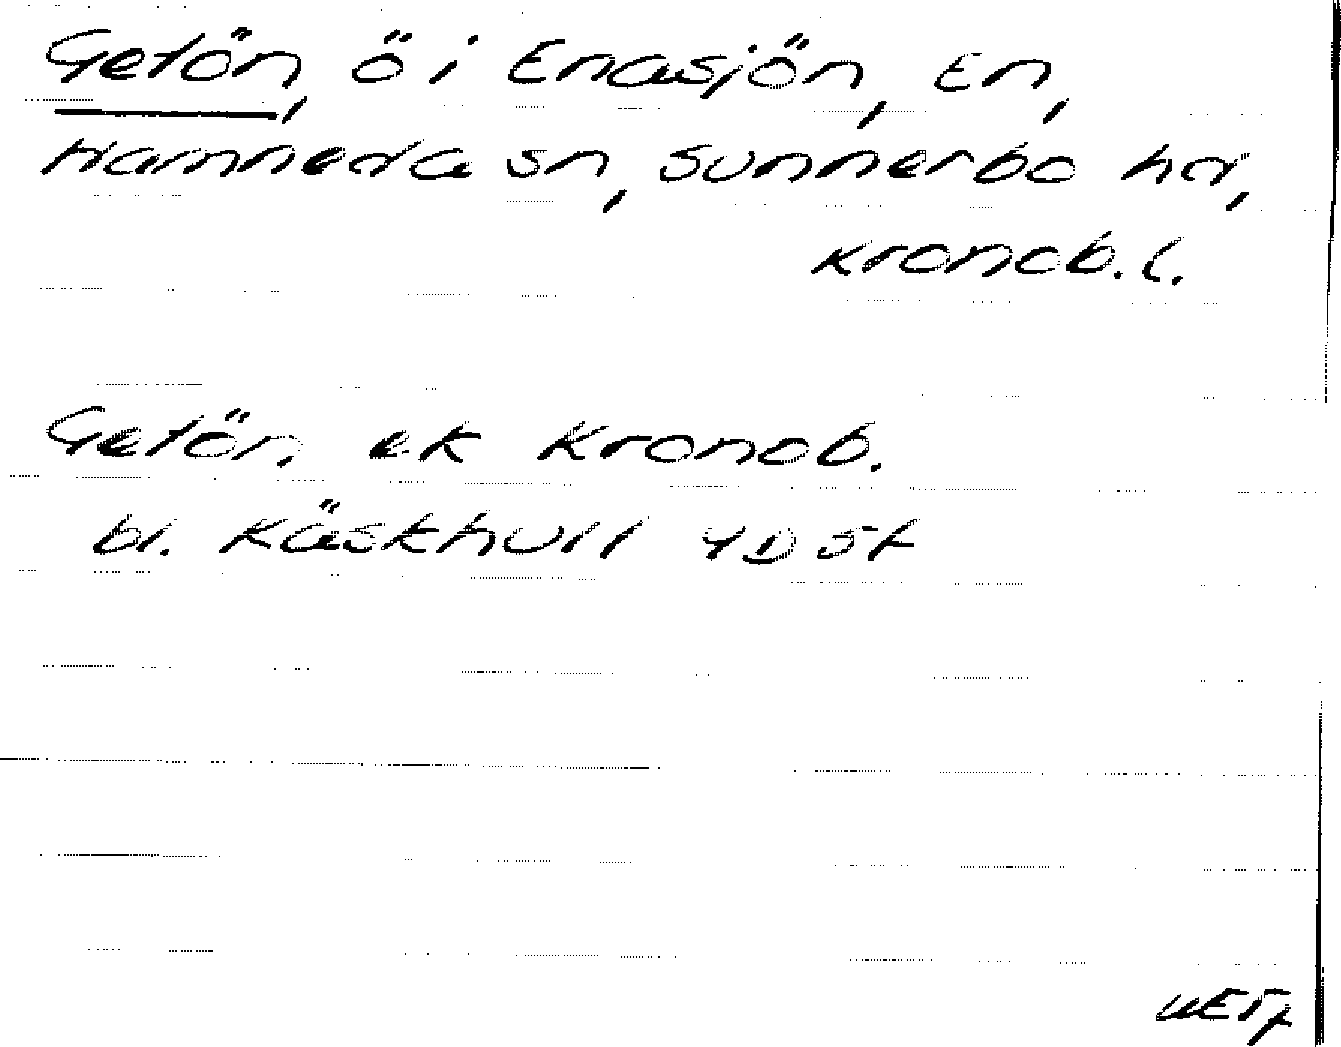 Getön, ö i Enasjön, En,
Hamneda sn, Sunnerbo hd,
Kronob. l.
Getön, ek Kronob.
bl. Käskhull 4D 5f